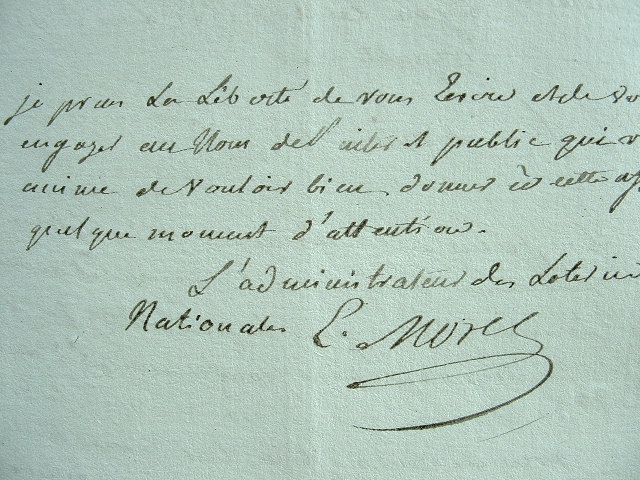 je prens La Liberté de vous Ecrire et de vo
engager au Nom de L'interet public qui v
anime de vouloir bien donner à cette af
quelque moment d'attention.
L'administrateur des Loteries
Nationales L. Morel